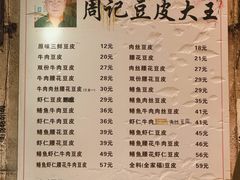 周记豆皮大王
原味三鲜豆皮 12元 肉丝豆皮 18元
牛肉豆皮 20元 腰花豆皮 21元
双份牛肉豆皮 30元 双份腰花豆皮 31元
牛肉腰花豆皮 30元 肉丝腰花豆皮 28元
牛肉肉丝腰花豆皮 39元 鳝鱼豆皮 29元
虾仁豆皮 27元 鳝鱼肉丝豆皮 35元
鳝鱼牛肉豆皮 37元 鳝鱼腰花豆皮 38元
虾仁牛肉豆皮 35元 虾仁 肉丝豆皮
虾仁腰花豆皮 36元 鳝鱼虾仁豆皮 41元
鳝鱼牛肉腰花豆皮 47元
虾仁牛肉腰花豆皮 45元
鳝鱼虾仁牛肉豆皮 49元 鳝鱼腰花虾仁豆皮 50元
鳝鱼虾仁牛肉腰花豆皮 57元 全料(全家福)豆皮 59元